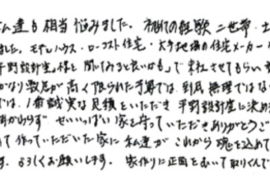 私達も相当悩みました。初めての経験、二世帯、土
ました。モデルハウス・ローコスト住宅・大手地場の住宅メーカー
平野設計室様と聞いてみると良いかも」で来社させてもらい
かなり敷居が高く限られた予算では、到底無理ではな
では、1番誠実な見積をいただき平野設計室に決め
せいいっぱい家を守っていただきありがとうご
て作っていただいた家に私達がこれから魂を込めて
す。よろしくお願いします。家作りに正面をおいて取りくんで